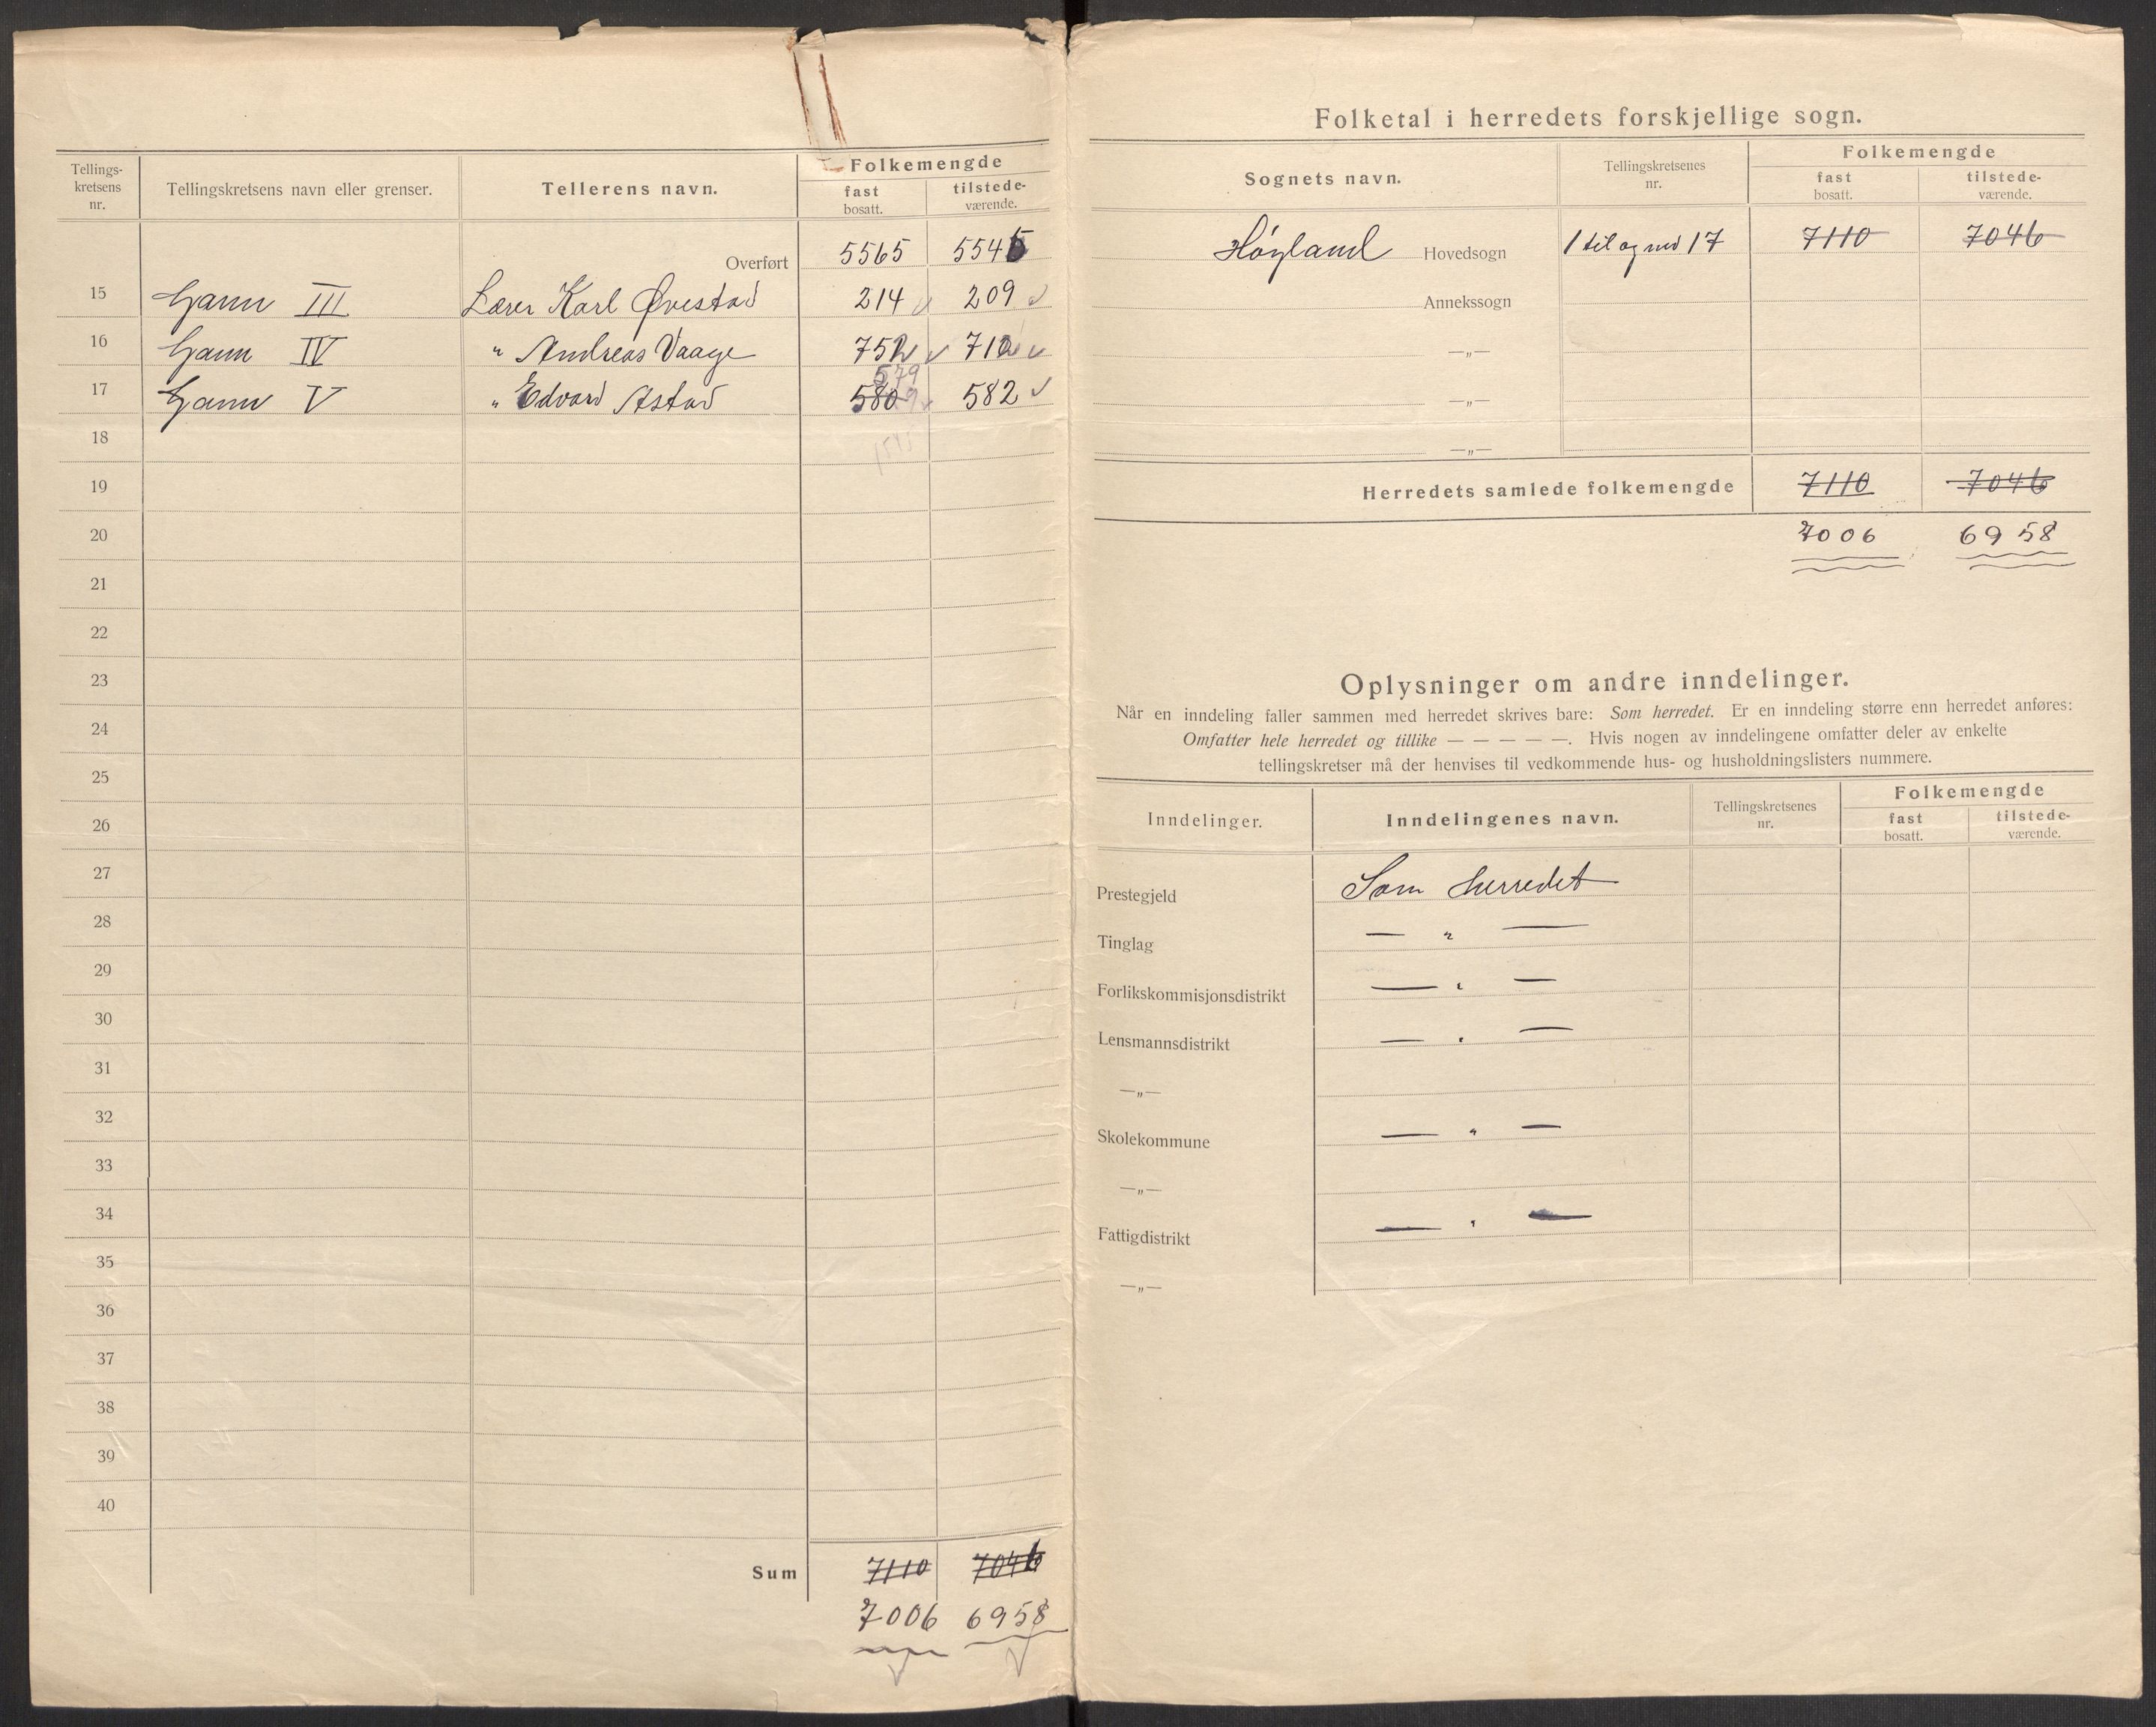 Tellings-
kretsens
nr.
Tellingskretsens navn eller grenser.
Tellerens navn.
Folkemengde
fast
bosatt.
tilstede-
værende.
Overført 5565 5546
15 Gann III Lærer Karl Øvestad 214 209
16 Gann IV " Andreas Vaage 752 712
579
17 Gann V " Edvard Astad 580 582
18
19
20
21
22
23
24
25
26
27
28
29
30
31
32
33
34
35
36
37
38
39
40
Sum 7110 7046
7006 6958
Folketal i herredets forskjellige sogn.
Sognets navn.
Tellingskretsenes
nr.
Folkemengde
fast
bosatt.
tilstede-
værende.
Høyland Hovedsogn 1 til og med 17 7110 7046
Annekssogn
—„—
—„—
—„—
Herredets samlede folkemengde 7110 7046
7006 6958
Oplysninger om andre inndelinger.
Når en inndeling faller sammen med herredet skrives bare: Som herredet. Er en inndeling større enn herredet anføres:
Omfatter hele herredet og tillike — — — — —. Hvis nogen av inndelingene omfatter deler av enkelte
tellingskretser må der henvises til vedkommende hus- og husholdningslisters nummere.
Inndelinger.
Inndelingenes navn.
Tellingskretsenes
nr.
Folkemengde
fast
bosatt.
tilstede-
værende.
Prestegjeld Som herredet
Tinglag — " —
Forlikskommisjonsdistrikt — " —
Lensmannsdistrikt — " —
—„—
Skolekommune — " —
—„—
Fattigdistrikt — " —
—„—